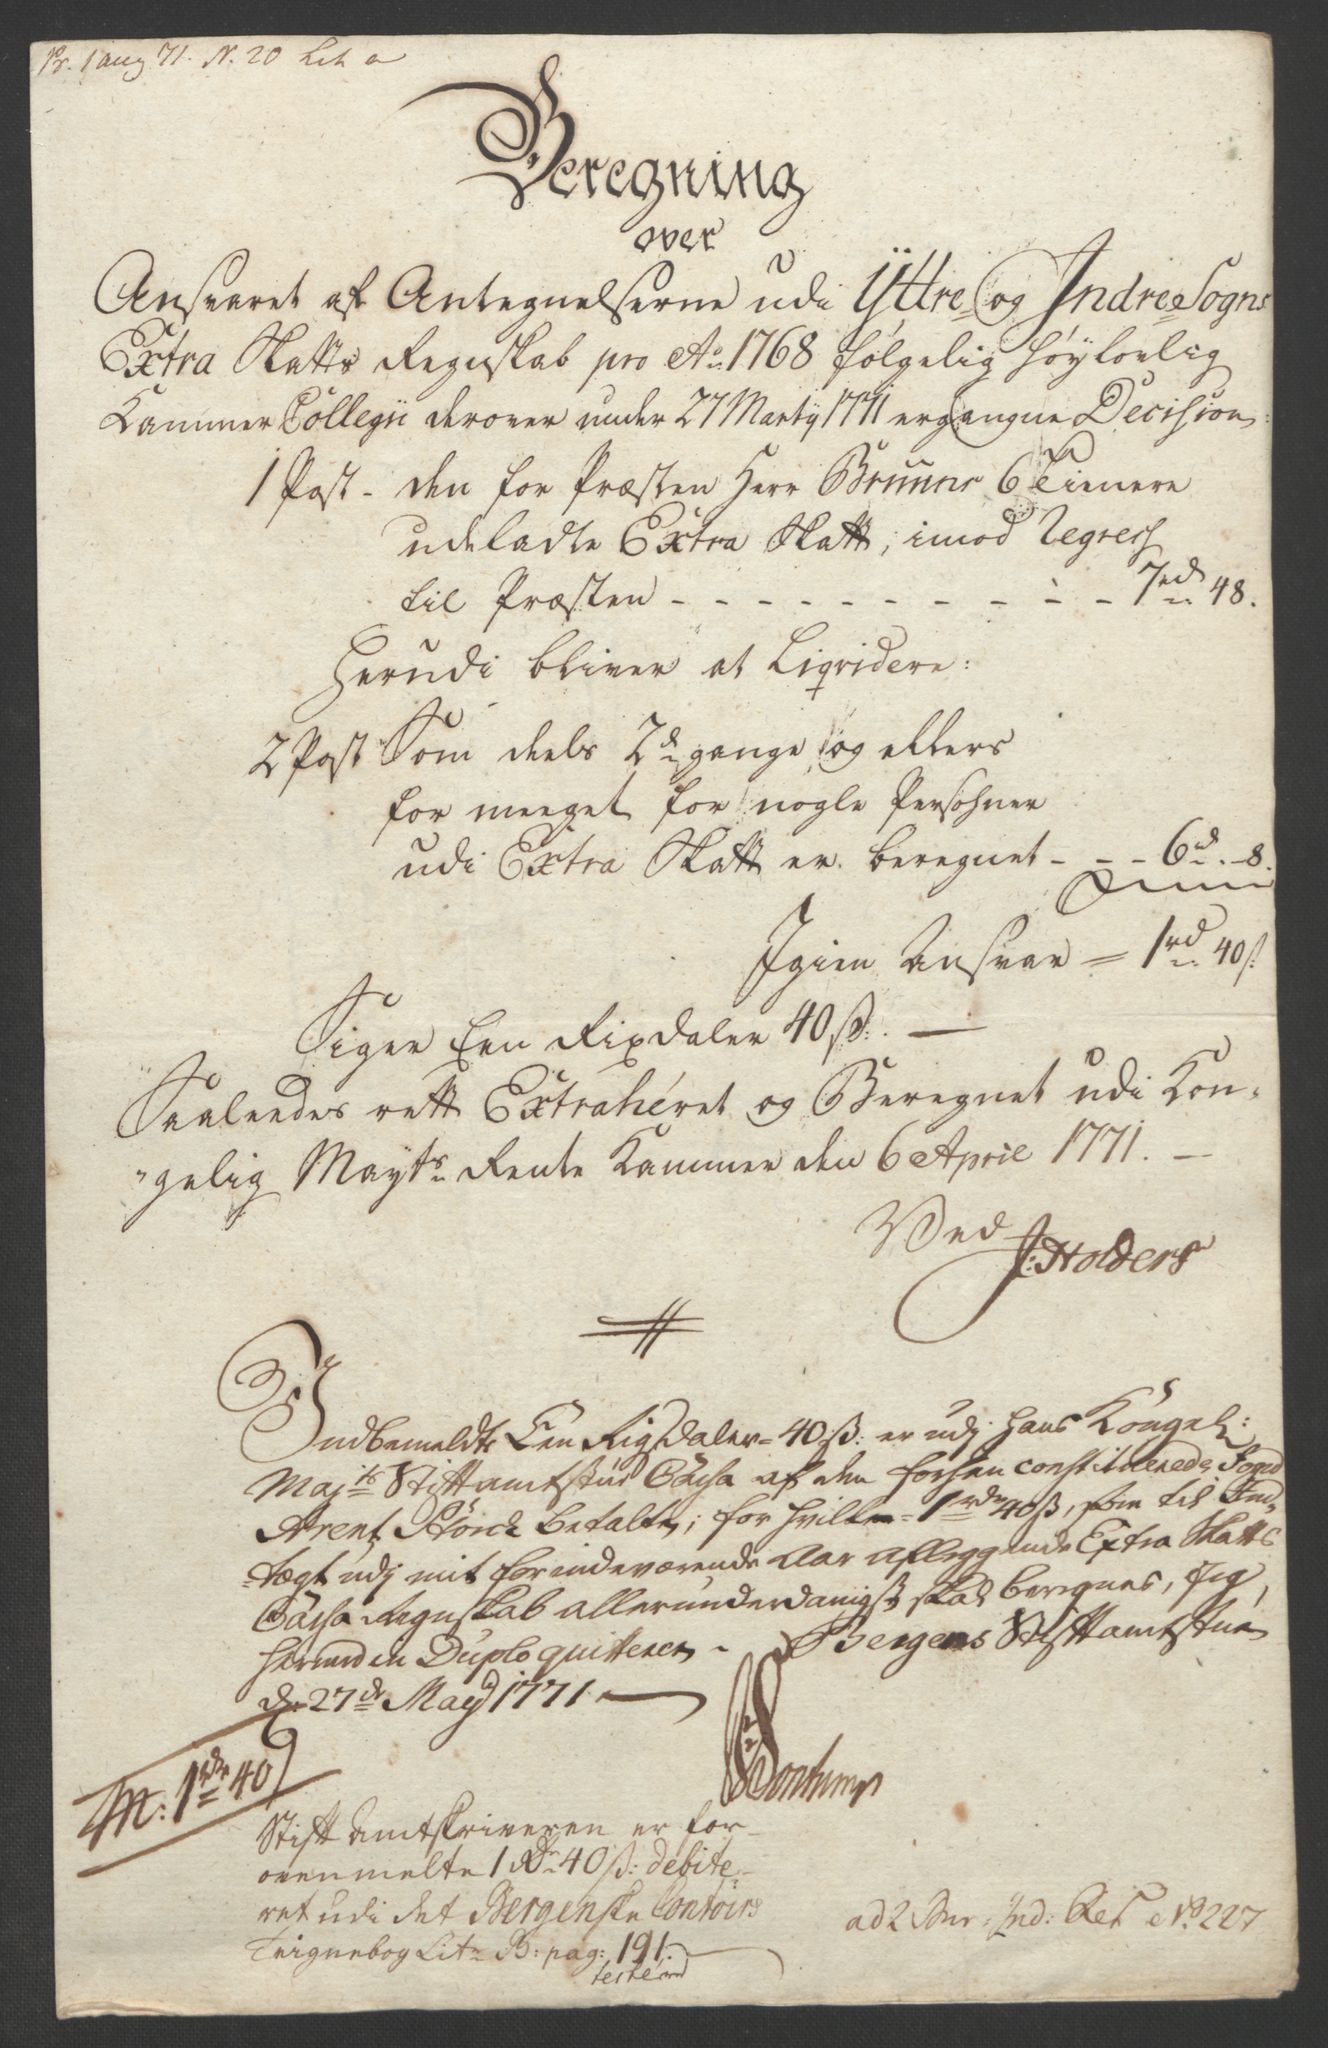 Pr. 1 aug 71. N. 20 Lit a
Beregning
over
Ansvaret af Antegnelserne udi Ÿttre og Indre Sogns
Extra Skatts Regnskab pro Ao 1768 følgelig høylovlig
Kammer Collegii derover under 27 Martij 1771 ergangne Decision:
1 Post - den for Præsten Herr Bruuns 6 Tienere
udeladte Extra Skatt, imod Regress
til Præsten - - - - - - - - - - - 7rd 48.
Herudi bliver at Liqvidere:
2 Post Som deels 2de gange og ellers
for meeget for nogle Persohner
udi Extra Skatt er beregnet - - - 6d. - 8.
Igien Ansvar = 1rd 40ß.
Siger Een Rixdaler 40ß. —
Saaleedes rett Extrahéret og Beregnet udi Kon-
gelig Mayts Rente Kammer den 6 April 1771. —
Ved
J: Holders
Indbemeldte Een Rigsdaler 40ß: er udj Hans Kongel:
Majts Stiftamtstue Cassa af den forhen constituerede Fogd
Arent betalte; for hvilke 1rdr 40ß, som til Ind-
tægt udj mit for indeværende Aar aflæggende Extra Skatts
Cassa Regnskab allerunderdanigst skal beregnes, Jeg
herved in Duplo quitterer - Bergens Stiftamtstue
d: 27de May 1771 —
M: 1rdr 40
Stiftamtskriveren er for-
ovenmelte 1 Rdr 40ß: debite-
ret udi det Bergenske Contoirs
Teignebog Litr B: pag: 191.
testerer
ad 2 Bur: Ind: Ret No 227